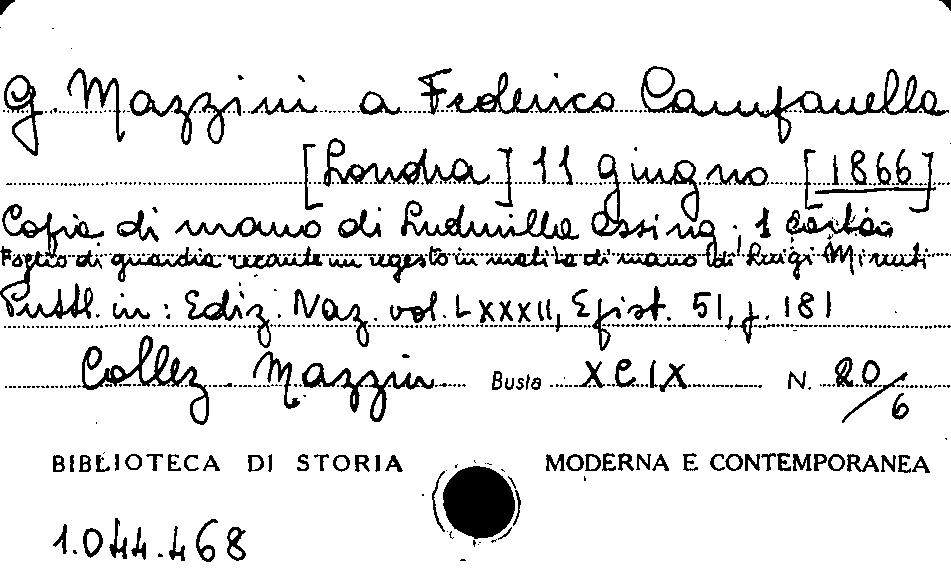 G. Mazzini a Federico Campanella
[Londra] 11 giugno [1866]
Copia di mano di Ludmilla Assing; 1 carta
Foglio di guardia recante un regesto in matita di mano di Luigi Minuti
Pubbl. in: Ediz. Naz. vol. LXXXII, Epist. 51, p. 181
Collez. Mazzin. Busta XCIX N. 20/6
BIBLIOTECA DI STORIA MODERNA E CONTEMPORANEA
1.044.468